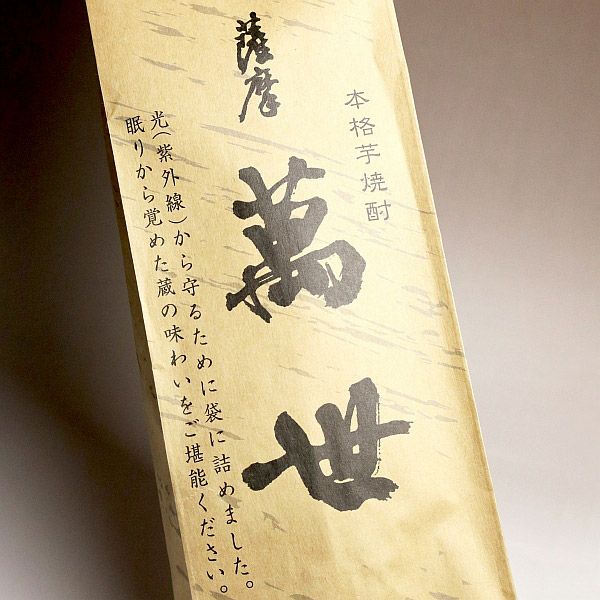 本格芋焼酎
薩摩
萬世
光(紫外線)から守るために袋に詰めました。
眠りから覚めた蔵の味わいをご堪能ください。